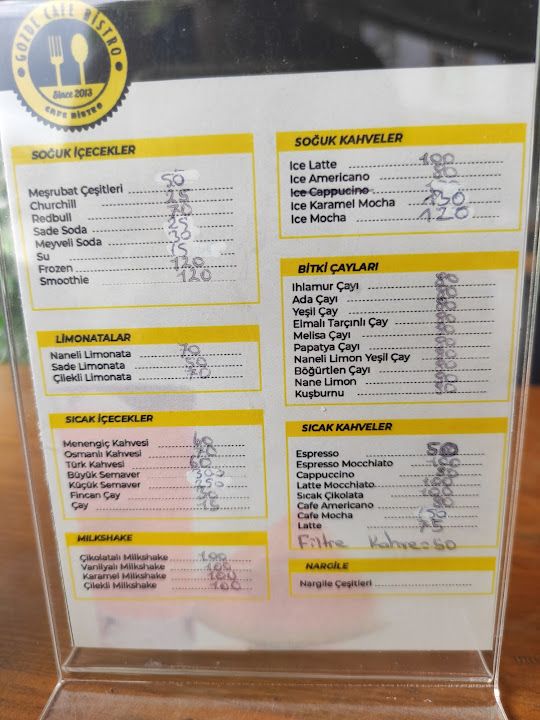 GÖZDE CAFE BİSTRO
Since 2013
CAFE BİSTRO
SOĞUK İÇECEKLER
Meşrubat Çeşitleri 50
Churchill
Redbull
Sade Soda
Meyveli Soda 30
Su 15
Frozen 120
Smoothie 120
LİMONATALAR
Naneli Limonata 70
Sade Limonata
Çilekli Limonata 70
SICAK İÇECEKLER
Menengiç Kahvesi
Osmanlı Kahvesi
Türk Kahvesi 60
Büyük Semaver 300
Küçük Semaver 250
Fincan Çay
Çay 15
MILKSHAKE
Çikolatalı Milkshake 100
Vanilyalı Milkshake 100
Karamel Milkshake 100
Çilekli Milkshake 100
SOĞUK KAHVELER
Ice Latte 100
Ice Americano
Ice Cappucino
Ice Karamel Mocha 130
Ice Mocha 120
BİTKİ ÇAYLARI
Ihlamur Çayı
Ada Çayı
Yeşil Çay
Elmalı Tarçınlı Çay
Melisa Çayı
Papatya Çayı
Naneli Limon Yeşil Çay
Böğürtlen Çayı
Nane Limon
Kuşburnu
SICAK KAHVELER
Espresso 50
Espresso Mocchiato
Cappuccino
Latte Mocchiato
Sıcak Çikolata
Cafe Americano
Cafe Mocha
Latte
Filtre Kahve 50
NARGİLE
Nargile Çeşitleri